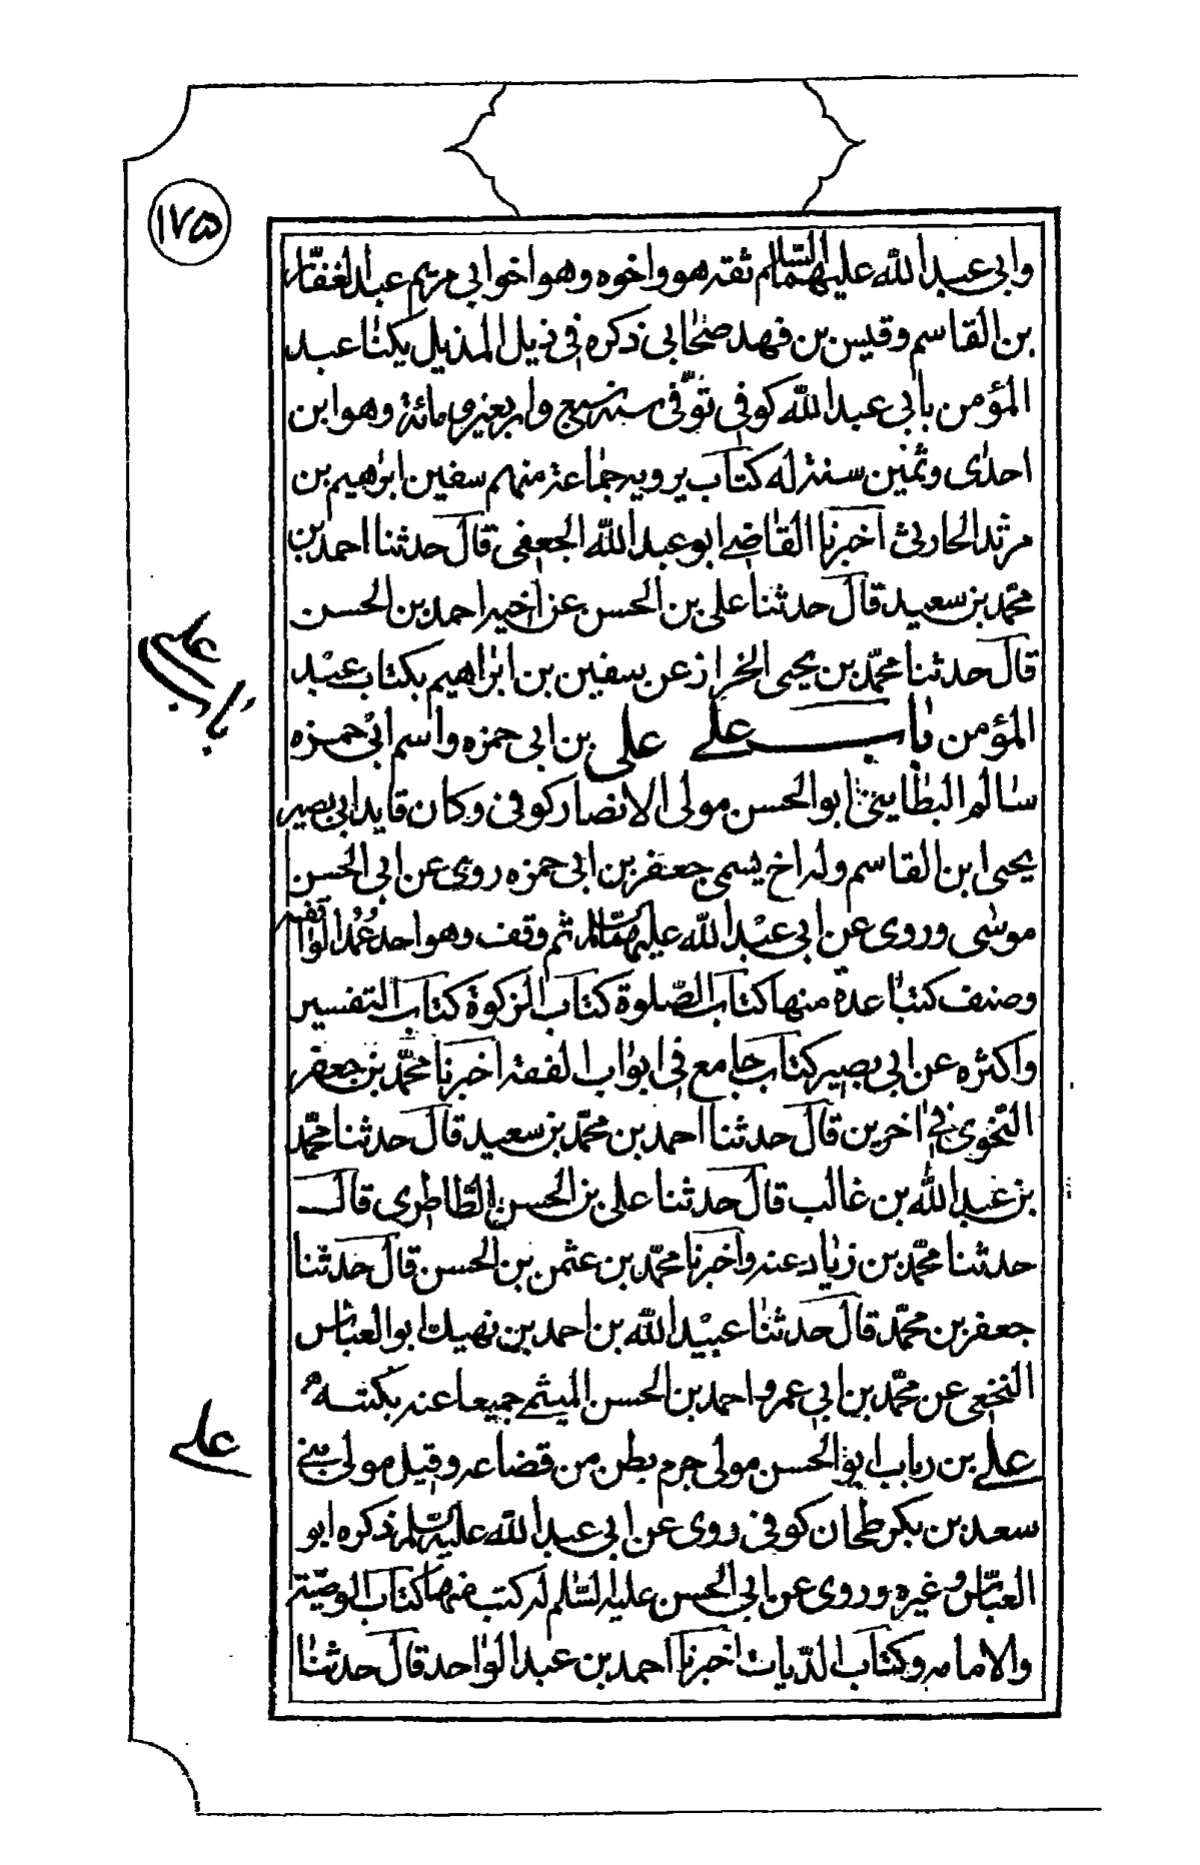 ١٧٥
وابي عبد الله عليهما السلام ثقة هو واخوه وهو اخو ابي مريم عبد الغفار
بن القاسم وقيس بن فهد صحابي ذكره في ذيل المذيل يكنا عبد
المؤمن بابي عبد الله كوفي توفى سنة سبع واربعين ومائة وهو ابن
احدى وثمنين سنة له كتاب يرويه جماعة منهم سفين ابراهيم بن
مرثد الحارثي اخبرنا القاضي ابو عبد الله الجعفي قال حدثنا احمد بن
محمد بن سعيد قال حدثنا علي بن الحسن عن اخيه احمد بن الحسن
قال حدثنا محمد بن يحيى الخراز عن سفين بن ابراهيم بكتاب عبد
المؤمن باب علي علي بن ابي حمزه واسم ابي حمزه
سالم البطايني ابو الحسن مولى الانصار كوفي وكان قايد ابي بصير
يحيى ابن القاسم وله اخ يسمى جعفر بن ابي حمزه روى عن ابي الحسن
موسى وروى عن ابي عبد الله عليهما السلام ثم وقف وهو احد عمد الواقفه
وصنف كتبا عدة منها كتاب الصلوة كتاب الزكوة كتاب التفسير
واكثره عن ابي بصير كتاب جامع في ابواب الفقه اخبرنا محمد بن جعفر
النحوي في اخرين قال حدثنا احمد بن محمد بن سعيد قال حدثنا محمد
بن عبد الله بن غالب قال حدثنا علي بن الحسن الطاطري قال
حدثنا محمد بن زياد عنه واخبرنا محمد بن عثمن بن الحسن قال حدثنا
جعفر بن محمد قال حدثنا عبيد الله بن احمد بن نهيك ابو العباس
النخعي عن محمد بن ابي عمر واحمد بن الحسن الميثمي جميعا عنه بكتبه
علي بن رباب ابو الحسن مولى جرم بطن من قضاعه وقيل مولى بني
سعد بن بكر طحان كوفي روى عن ابي عبد الله عليه السلم ذكره ابو
العباس وغيره وروى عن ابي الحسن عليه السلم له كتب منها كتاب الوصية
والامامه وكتاب الديات اخبرنا احمد بن عبد الواحد قال حدثنا
باب علي
علي